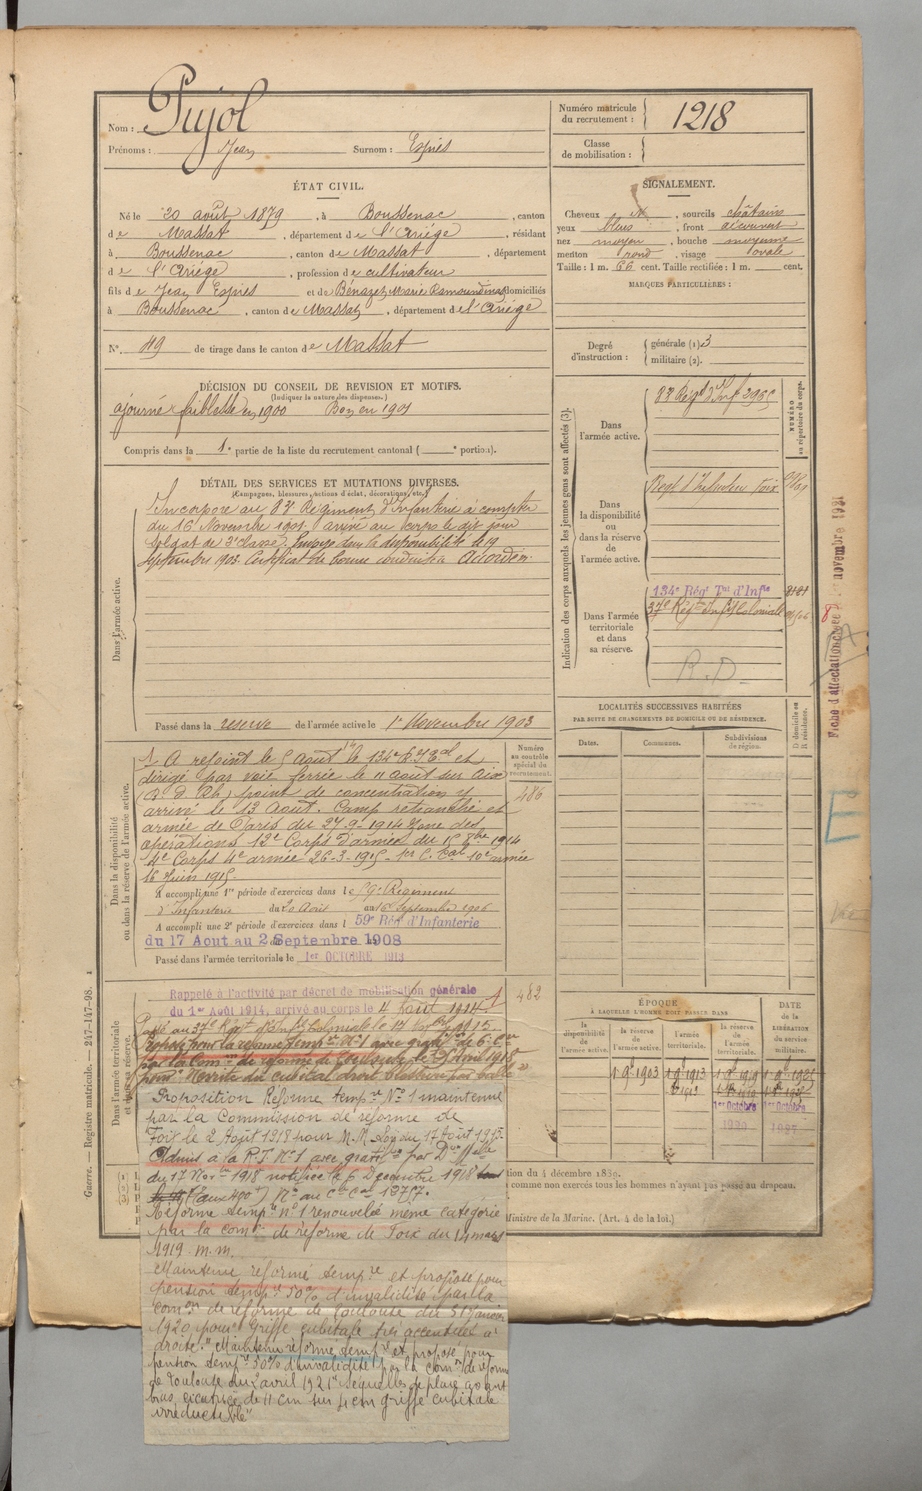 Nom : Pujol
Prénoms : Jean Surnom : Espiès
Numéro matricule du recrutement : 1218
Classe de mobilisation :
ÉTAT CIVIL.
Né le 20 août 1879, à Boussenac, canton
de Massat, département de l'Ariège, résidant
à Boussenac, canton de Massat, département
de l'Ariège, profession de cultivateur
fils de Jean Espiès et de Bénazet Marie Ramoundine domiciliés
à Boussenac, canton de Massat, département de l'Ariège
N° 49 de tirage dans le canton de Massat
SIGNALEMENT.
Cheveux N, sourcils châtains
yeux bleus, front découvert
nez moyen, bouche moyenne
menton rond, visage ovale
Taille : 1 m. 66 cent. Taille rectifiée : 1 m. cent.
MARQUES PARTICULIÈRES :
Degré d'instruction : générale (1) 3
militaire (2).
DÉCISION DU CONSEIL DE REVISION ET MOTIFS.
(Indiquer la nature des dispenses.)
ajourné faiblesse en 1900 Bon en 1901
Compris dans la 1e partie de la liste du recrutement cantonal ( e portion).
DÉTAIL DES SERVICES ET MUTATIONS DIVERSES.
(Campagnes, blessures, actions d'éclat, décorations, etc.)
Dans l'armée active.
Incorporé au 83e Régiment d'Infanterie à compter
du 16 Novembre 1901 arrivé au corps le dit jour
soldat de 2e classe. Envoyé dans la disponibilité le 19
septembre 1903. Certificat de bonne conduite Accordé.
Passé dans la réserve de l'armée active le 1er Novembre 1903
Indication des corps auxquels les jeunes gens sont affectés (3).
NUMÉRO au répertoire du corps.
Dans l'armée active.
83e Régt d'Inf
Dans la disponibilité ou dans la réserve de l'armée active.
Regt d'Infanterie Foix
Dans l'armée territoriale et dans sa réserve.
134e Régt Tal d'Infie
37e Régt Inf Coloniale
R.D
LOCALITÉS SUCCESSIVES HABITÉES
PAR SUITE DE CHANGEMENTS DE DOMICILE OU DE RÉSIDENCE.
Dates. Communes. Subdivisions de région. D. domicile ou R. résidence.
Dans la disponibilité ou dans la réserve de l'armée active.
Numéro au contrôle spécial du recrutement.
486
A rejoint le 5 Août le 134e R.I. Tal et
dirigé par voie ferrée le 11 août sur Aix
(B. d Rh) point de concentration y
arrivé le 13 Août. Camp retranché et
armée de Paris du 27-9-1914 Zone des
opérations 12e Corps d'armée du 15 8bre 1914
4e Corps 4e armée 26-3-1915 - 1er C. Cal 10e armée
16 Juin 1915.
A accompli une 1re période d'exercices dans le 59e Régiment
d'Infanterie du 20 Août au 16 Septembre 1906
A accompli une 2e période d'exercices dans l 59e Rég d'Infanterie
du 17 Aout au 2 Septembre 1908
Passé dans l'armée territoriale le 1er OCTOBRE 1913
Dans l'armée territoriale et dans sa réserve.
482
Rappelé à l'activité par décret de mobilisation générale
du 1er Août 1914, arrivé au corps le 4 Août 1914.
Passé au 37e Regt d'Infie Coloniale le
Proposé pour la réforme tempre N°1 avec gratifon de 6e Cie
par la Comon de réforme de Toulouse le Avril 1918
pour "Névrite du cubital droit blessure par balle"
Proposition Réforme tempre N° 1 maintenue
par la Commission de réforme de
Foix le 2 Août 1918 pour M. M. Loi du 17 Août 1915.
Admis à la R.T. N°1 avec gratifon par Don Mlle
du 17 Novre 1918 notifiée le 6 Décembre 1918
Réforme tempre n°1 renouvelée même catégorie
par la comon de réforme de Foix du 14 mars
1919. m.m.
Maintenu réformé tempre et proposé pour
pension tempre 30% d'invalidité par la
comon de réforme de Toulouse du 31 Janvr
1920 pour "Griffe cubitale très accentuée à
droite." Maintenu réformé tempre et proposé pour
pension tempre 30% d'invalidité par la comon de réforme
de Toulouse du 2 avril 1921 "Séquelles de plaie avant
bras, cicatrice de 11 cm sur 4 cm griffe cubitale
irréductible"
ÉPOQUE
À LAQUELLE L'HOMME DOIT PASSER DANS
la disponibilité de l'armée active. la réserve de l'armée active. l'armée territoriale. la réserve de l'armée territoriale.
DATE de la LIBÉRATION du service militaire.
1 9e 1903 1 9e 1913 1 9e 1919 1 9e 1925
1er Octobre 1er Octobre
tion du 4 décembre 1889.
comme non exercés tous les hommes n'ayant pas passé au drapeau.
Ministre de la Marine. (Art. 4 de la loi.)
Guerre. — Registre matricule. — 247-147-98.
Fiche d'affectation novembre 1921
E